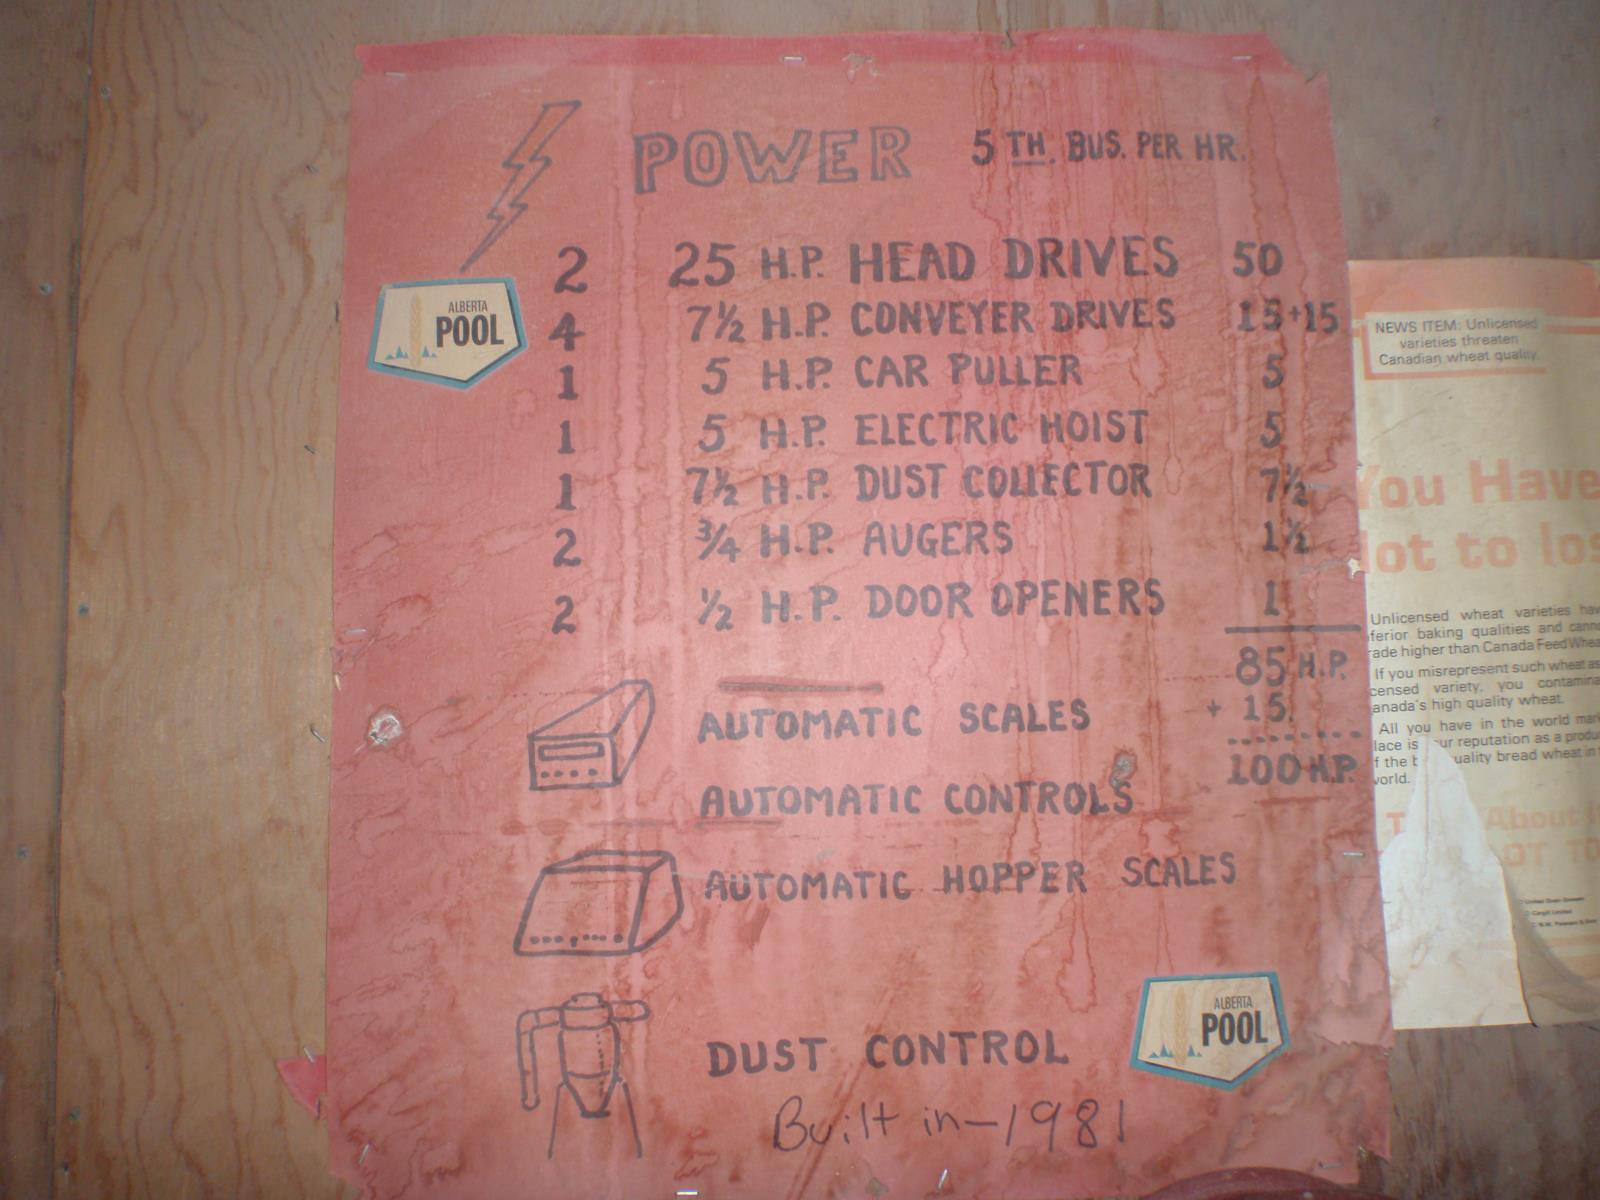 POWER 5 TH. BUS. PER HR.
2 25 H.P. HEAD DRIVES 50
4 7½ H.P. CONVEYER DRIVES 15+15
1 5 H.P. CAR PULLER 5
1 5 H.P. ELECTRIC HOIST 5
1 7½ H.P. DUST COLLECTOR 7½
2 ¾ H.P. AUGERS 1½
2 ½ H.P. DOOR OPENERS 1
85 H.P.
+ 15.
100 H.P.
AUTOMATIC SCALES
AUTOMATIC CONTROLS
AUTOMATIC HOPPER SCALES
DUST CONTROL
Built in - 1981
ALBERTA
POOL
ALBERTA
POOL
NEWS ITEM: Unlicensed
varieties threaten
Canadian wheat quality.
You Have
lot to los
Unlicensed wheat varieties hav
ferior baking qualities and canno
rade higher than Canada Feed Whea
If you misrepresent such wheat as
censed variety, you contamina
anada's high quality wheat.
All you have in the world mark
lace is your reputation as a produ
f the b uality bread wheat in
world.
About
OT TO
United Grain Growers
Cargill Limited